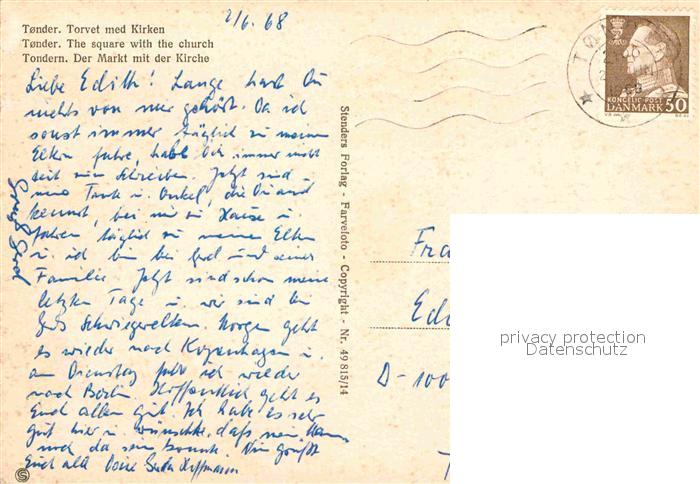 2/6. 68
Tønder. Torvet med Kirken
Tønder. The square with the church
Tondern. Der Markt mit der Kirche
Liebe Edith! Lange hast Du
nichts von mir gehört. Da ich
sonst immer täglich zu meinen
Eltern fahre, habe ich immer nicht
Zeit zum Schreiben. Jetzt sind
Tante u. Onkel, die Du auch
kennst, bei mir zu Hause u.
fahren täglich zu meinen Eltern
u. ich bin bei und seiner
Familie. Jetzt sind schon meine
letzten Tage u. wir sind bei
Schwiegereltern. Morgen geht
es wieder nach Kopenhagen u.
am Dienstag ich wieder
nach Berlin. Hoffentlich geht es
Euch allen gut. Ich habe es sehr
gut hier u. wünschte, daß mein Mann
noch da sein konnte. Nun grüßt
Euch alle Deine
Stenders Forlag - Farvefoto - Copyright - Nr. 49 815/14
KONGELIG POST
DANMARK 50
Fra
Ed
D-100
privacy protection
Datenschutz